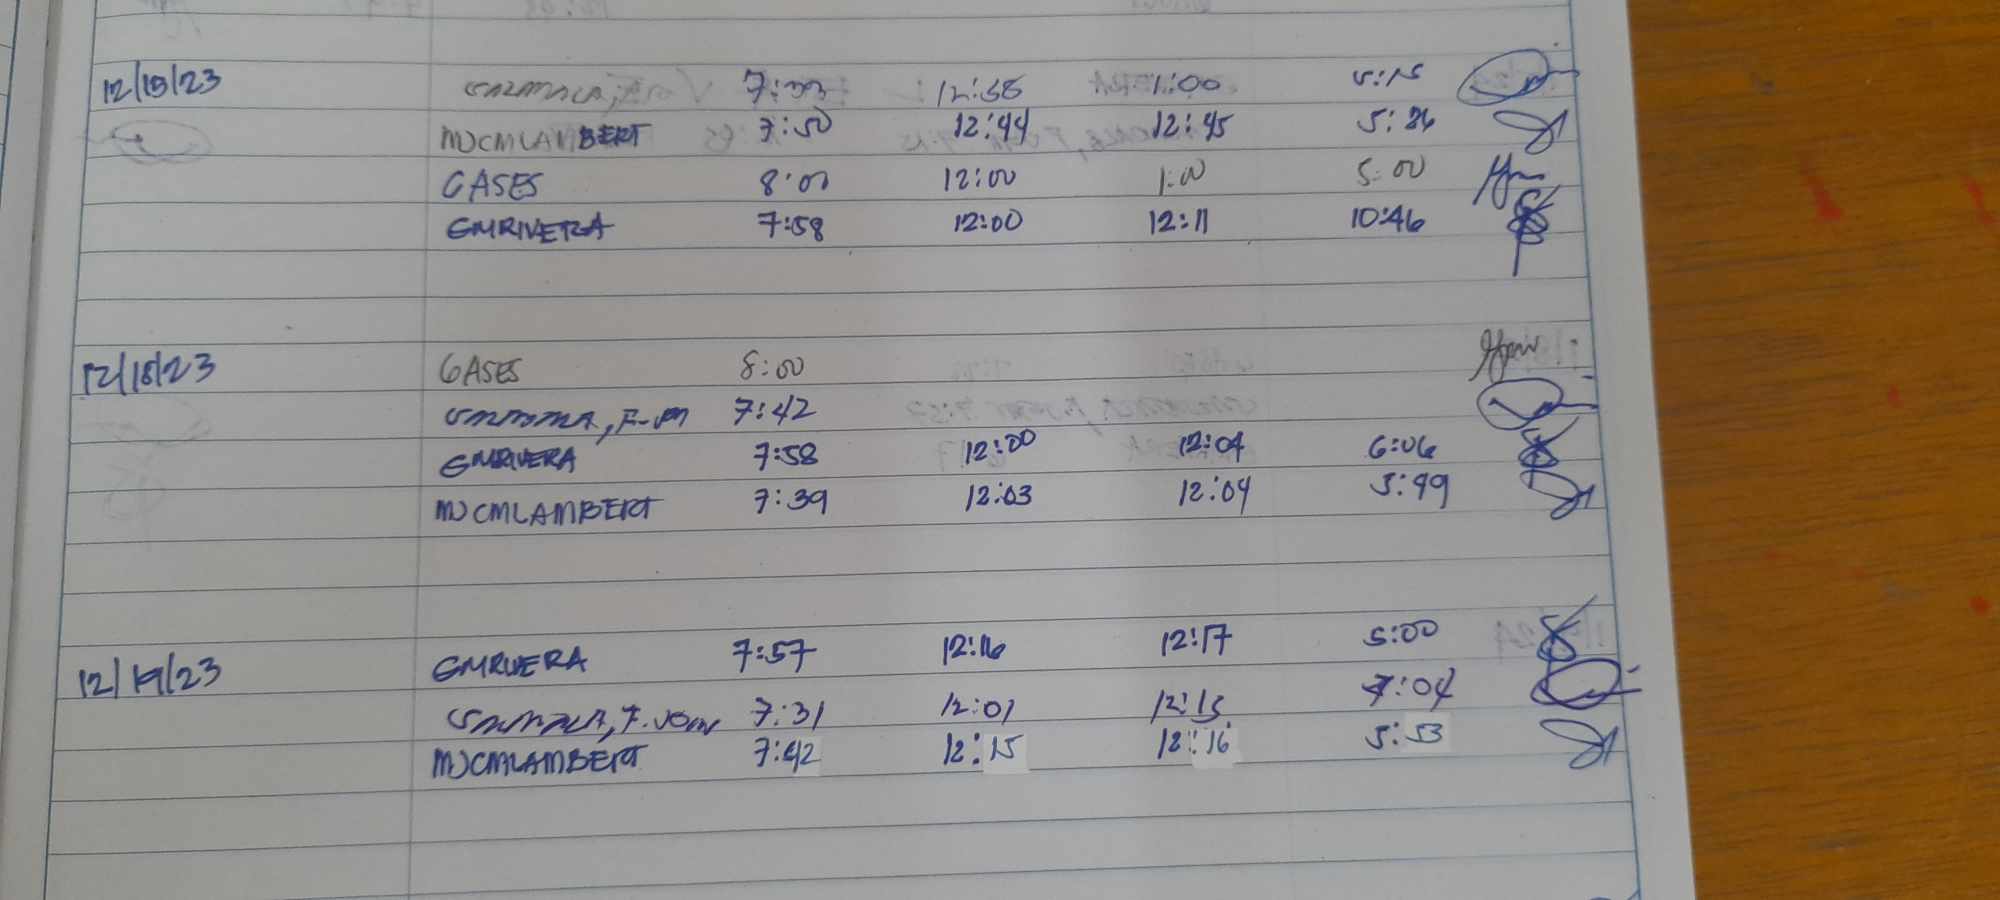 7:33 12:58 1:00 5:15
MJCMLAMBERT 7:50 12:44 12:45 5:26
GASES 8:00 12:00 1:00 5:00
GMRIVERA 7:58 12:00 12:11 10:46
12/18/23 GASES 8:00
7:42
GMRIVERA 7:58 12:00 12:04 6:06
MJCMLAMBERT 7:39 12:03 12:04 5:49
12/19/23 GMRIVERA 7:57 12:16 12:17 5:00
7:31 12:01 12:13 7:04
MJCMLAMBERT 7:42 12:15 12:16 5:53